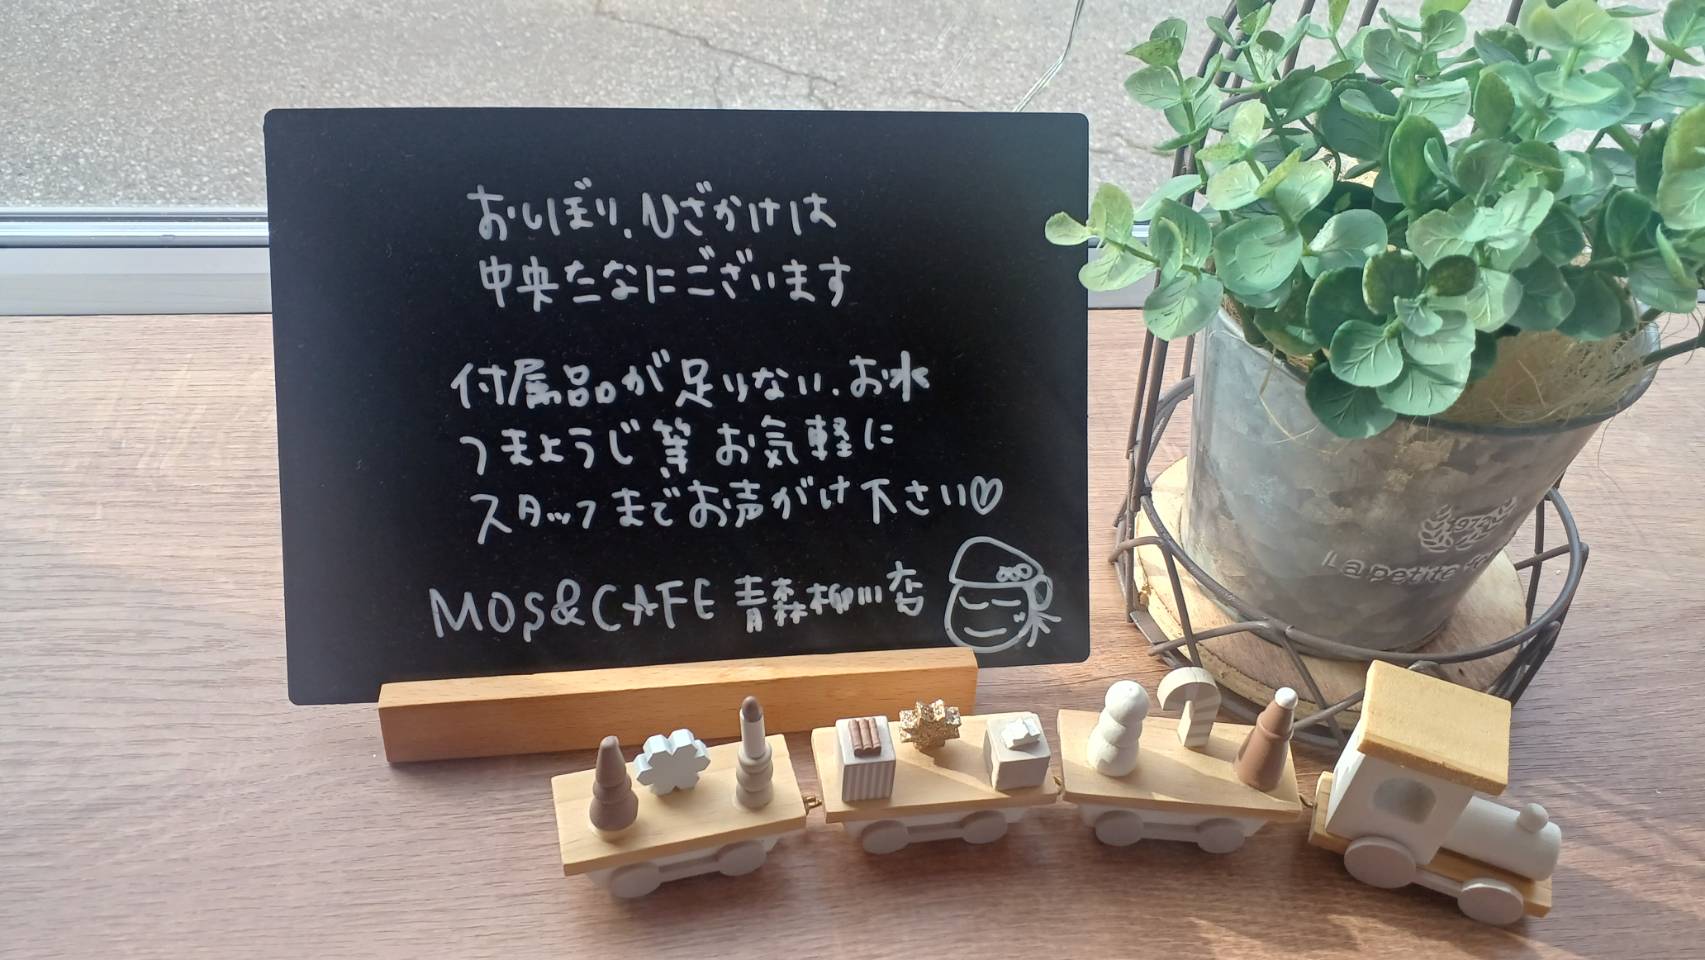 おしぼり、ひざかけは
中央たなにございます
付属品が足りない、お水
つまようじ等 お気軽に
スタッフまでお声がけ下さい♡
MOS&CAFE 青森柳川店
1972
La petite